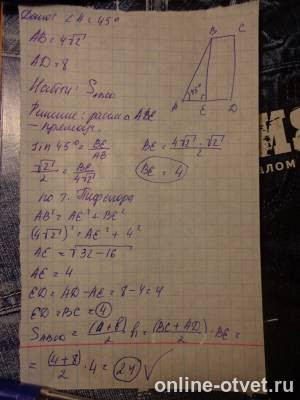 Дано: ∠A = 45°
AB = 4√2
AD = 8
Найти: S ABCD
Решение: рассм. △ABE
– прямоуг.
sin 45° = BE/AB
√2/2 = BE/4√2
BE = 4√2 · √2/2
BE = 4
по т. Пифагора
AB² = AE² + BE²
(4√2)² = AE² + 4²
AE = √32-16
AE = 4
ED = AD - AE = 8 - 4 = 4
ED = BC = 4
S ABCD = (a+b)/2 · h = (BC + AD)/2 · BE =
= (4+8)/2 · 4 = 24
B C
45°
A E D
online-otvet.ru